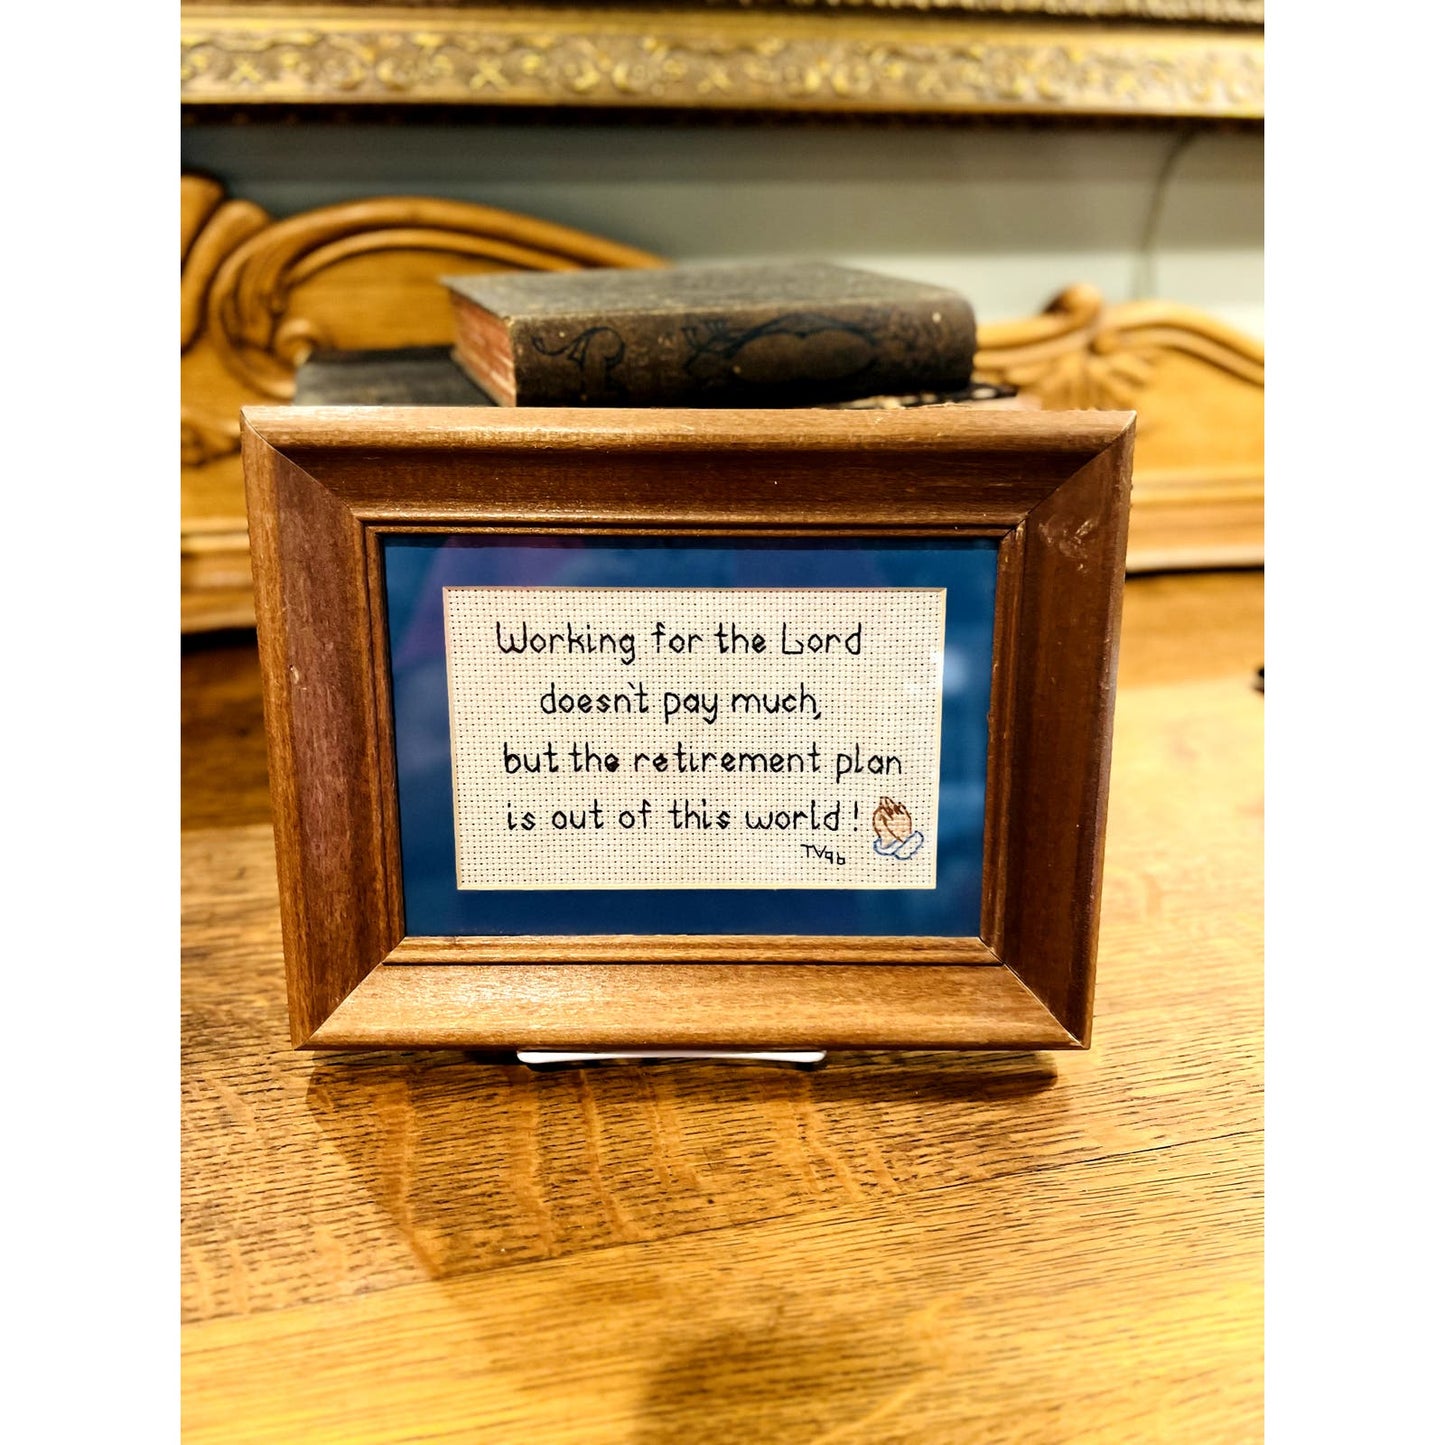 Working for the Lord
doesn't pay much,
but the retirement plan
is out of this world!
TV96